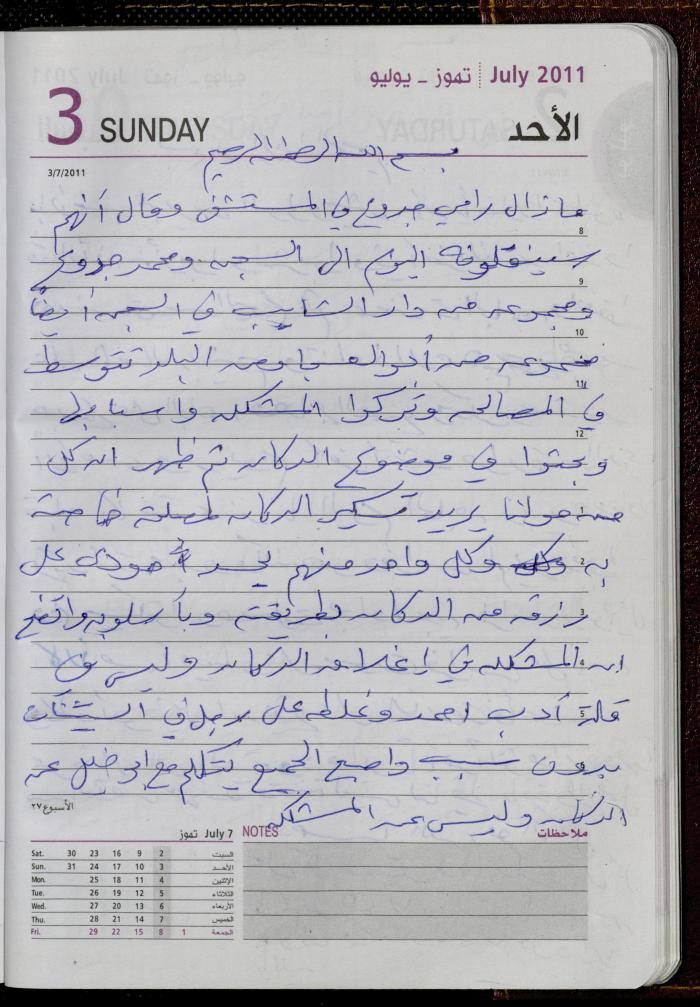 July 2011 تموز ـ يوليو
3 SUNDAY الأحد
بسم الله الرحمن الرحيم
3/7/2011
ما زال رامي جروح في المستشفى وقال أنهم
8
سينقلونه اليوم الى السجن ومحمد جروح
9
ومجموعه من دار الشايب في السجن أيضاً
10
مجموعه من البلد تتوسط
11
في المصالحه وتركوا المشكله واسبابها
12
وبحثوا في موضوع الدكان ثم ظهر ان كل
من حولنا يريد تسكير الدكان لمصلحة خاصة
2
به وكل واحد منهم يحسد على
3
رزقه من الدكان بطريقته وبأسلوبه واتضح
4
ان المشكله في إغلاق الدكان وليس في
5
قلة أدب احمد وغلطه على رجل في
بدون سبب واضح الجميع يتكلم مع ابو خليل عن
الأسبوع ٢٧
الدكان وليس عن المشكله
July 7 تموز
NOTES ملاحظات
Sat. 30 23 16 9 2 السبت
Sun. 31 24 17 10 3 الأحد
Mon. 25 18 11 4 الإثنين
Tue. 26 19 12 5 الثلاثاء
Wed. 27 20 13 6 الأربعاء
Thu. 28 21 14 7 الخميس
Fri. 29 22 15 8 1 الجمعة